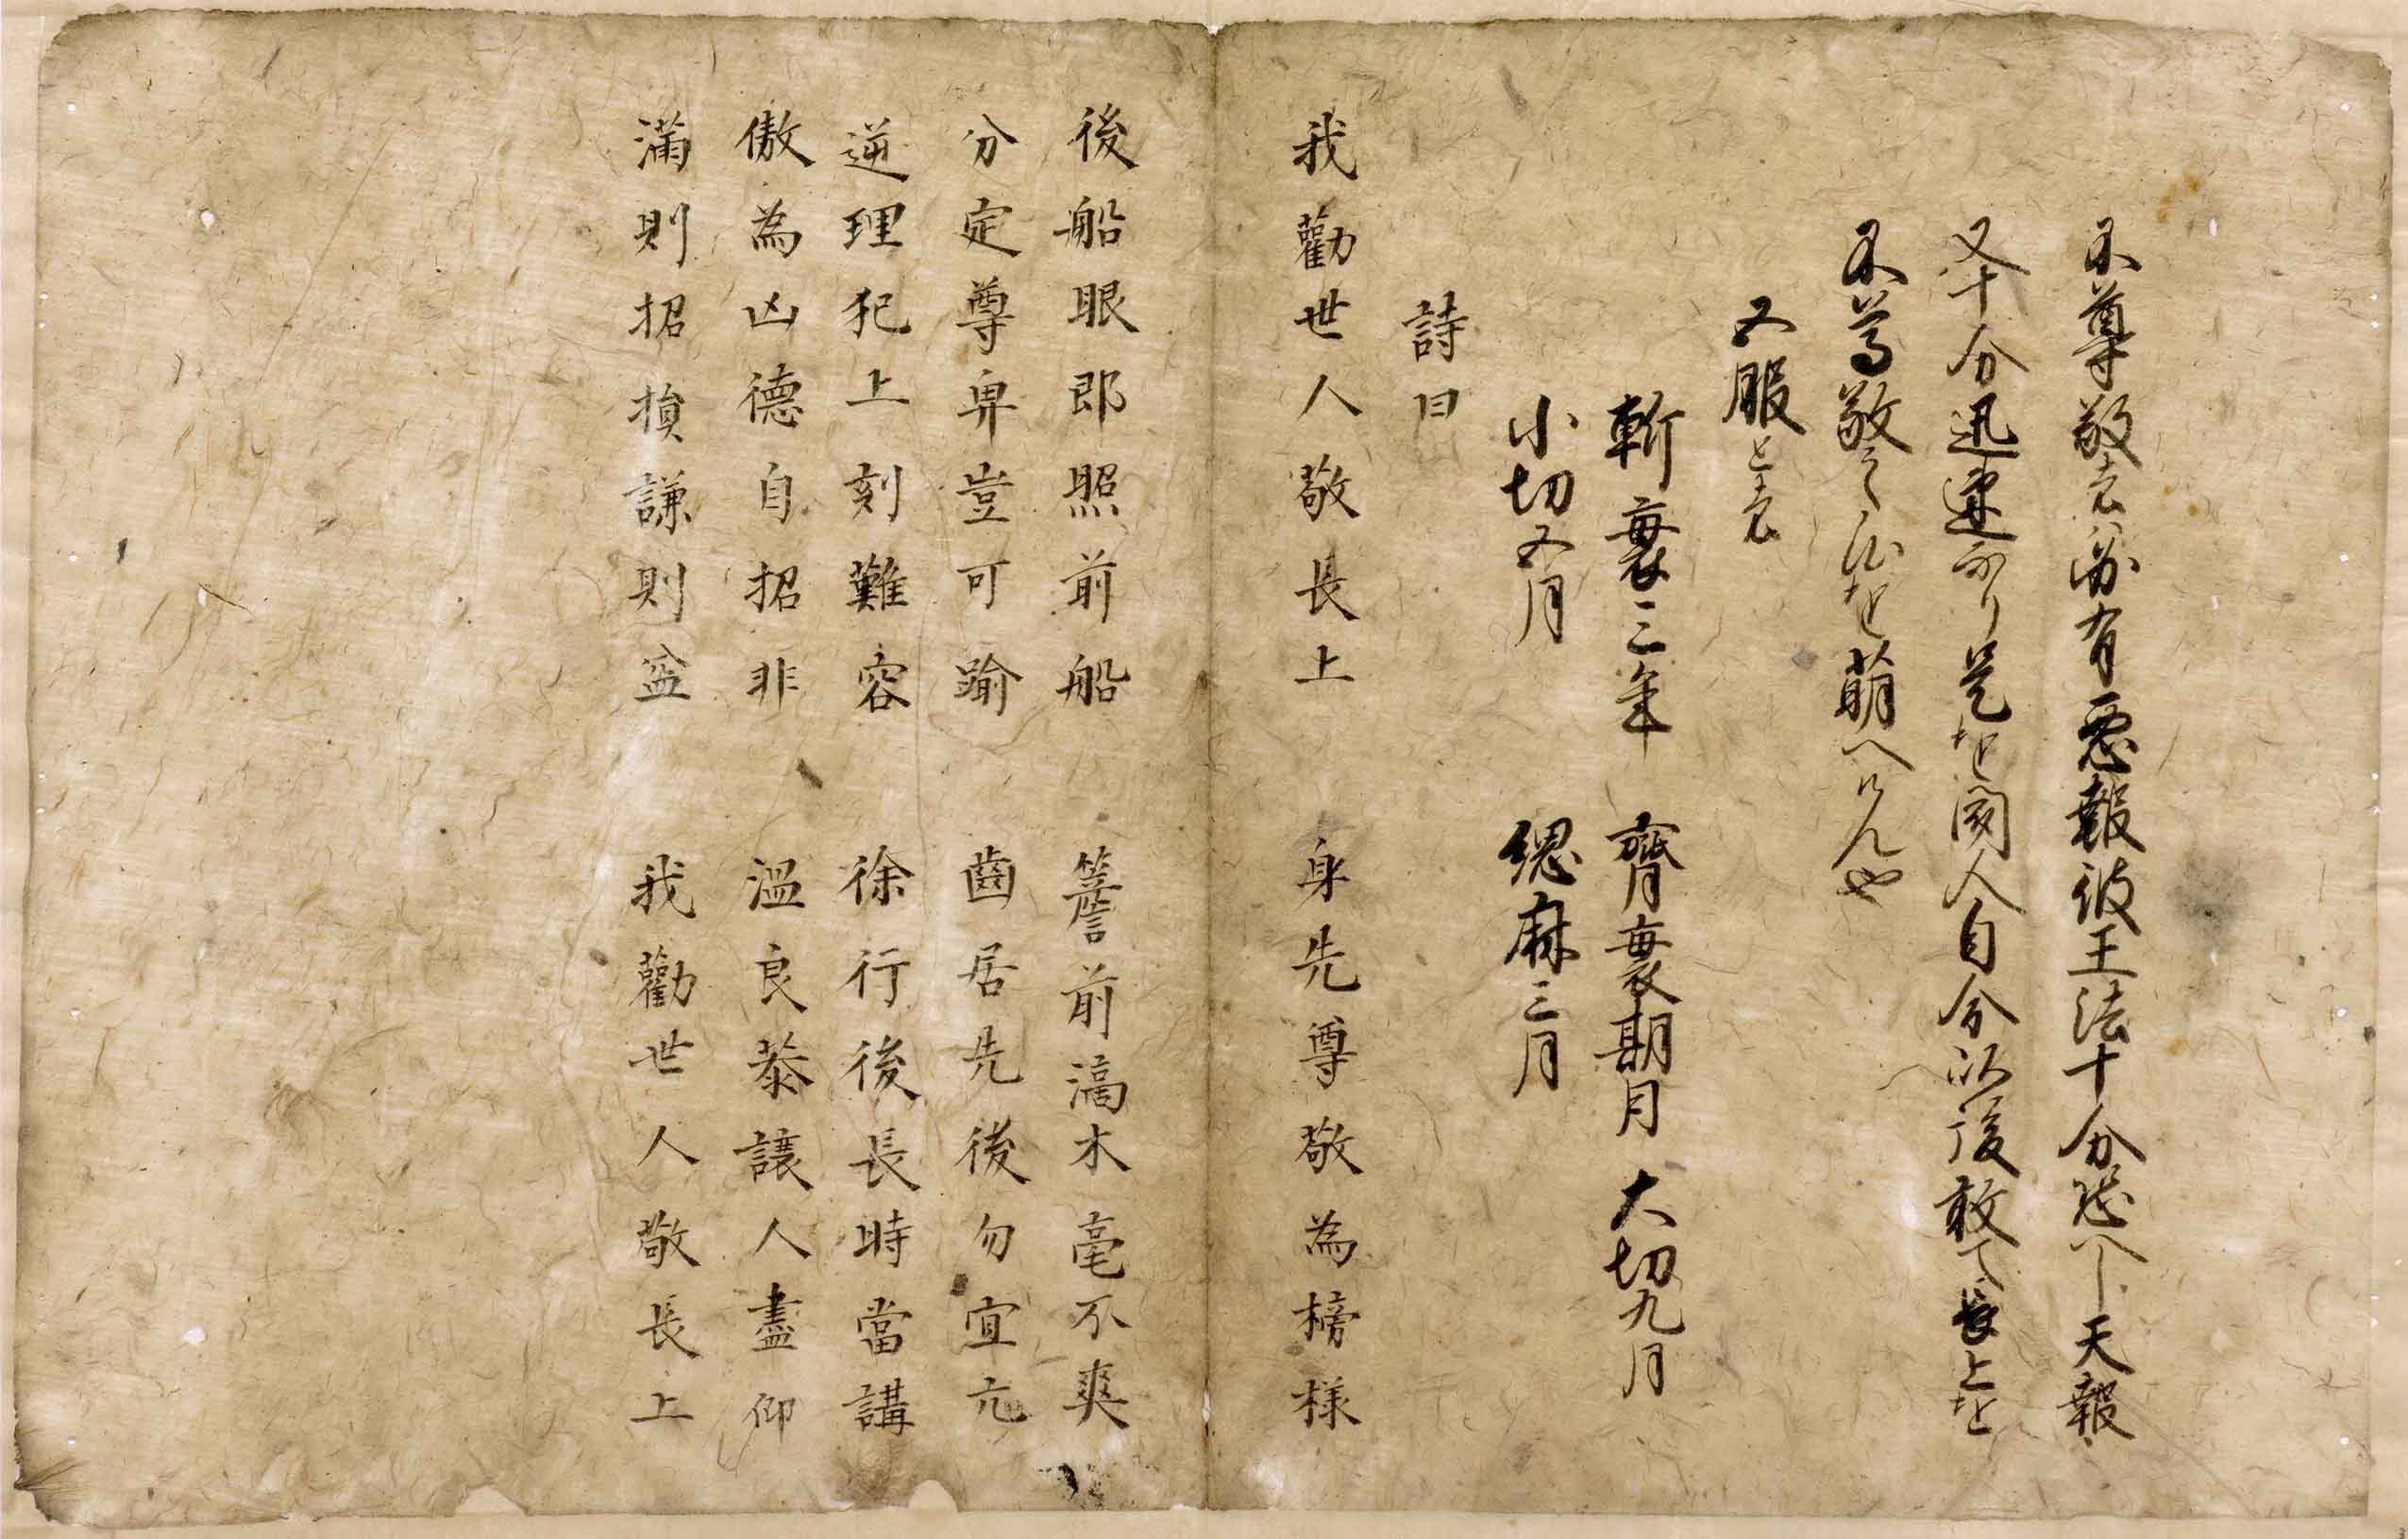 不尊敬者ハ必有悪報彼王法十分恐ヘし天報
又十分迅速なり是を聞人自今以後敢て長上を
不尊敬之心を萌へけんや
五服と者
斬衰三年 齊衰期月 大切九月
小切五月 緦麻三月
詩曰
我勸世人敬長上 身先尊敬為榜様
後船眼郎照前船 簷前滴木毫不爽
分定尊卑豈可踰 齒居先後勿宜亢
逆理犯上刻難容 徐行後長時當講
傲為凶德自招非 溫良恭讓人盡仰
滿則招損謙則益 我勸世人敬長上